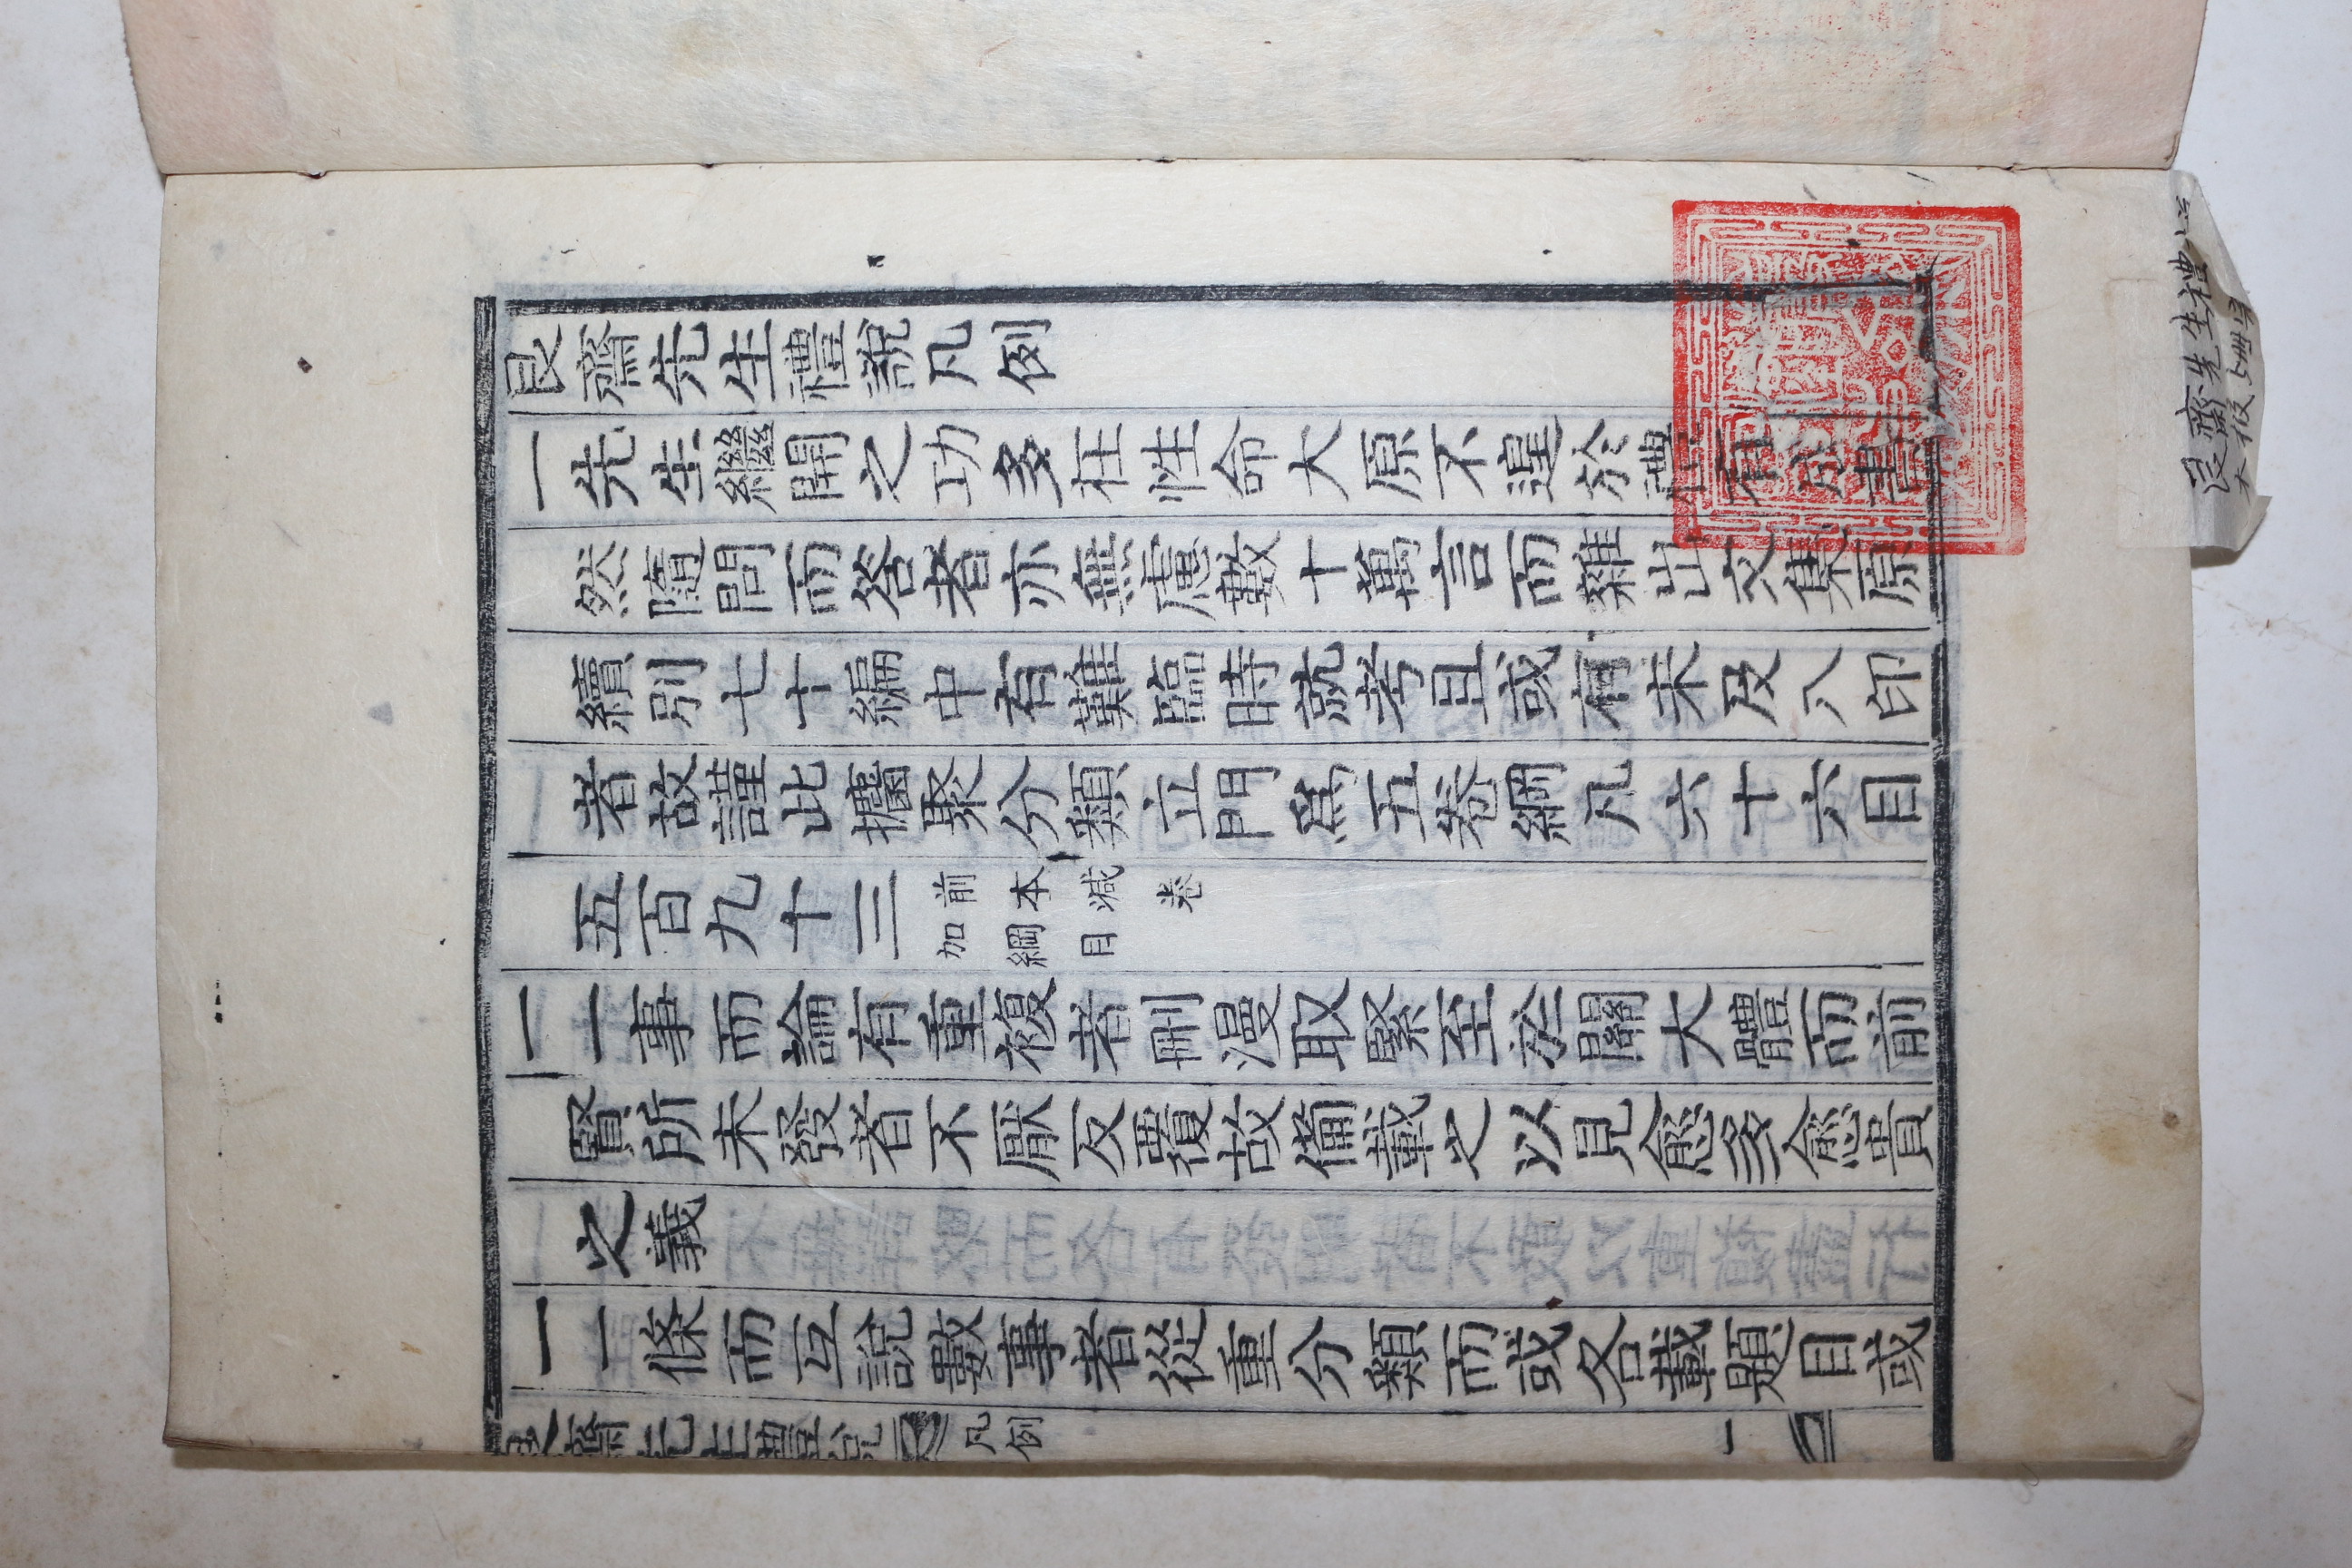 艮齋先生禮說凡例
一先生繼開之功多在性命大原不遑於禮有成書
然隨問而答者亦無慮數十萬言而雜出文集原
續別七十編中有難臨時就考且或有未及入印
者故謹此攟聚分類立門爲五卷綱凡六十六目
五百九十三
前本減卷
加綱目
一一事而論有重複者刪漫取緊至於關大體而前
賢所未發者不厭反覆故備載之以見愈多愈貴
之義
一一條而互說數事者從重分類而或各載題目或
艮齋先生禮說 凡例 一
艮齋先生禮
木板 5冊